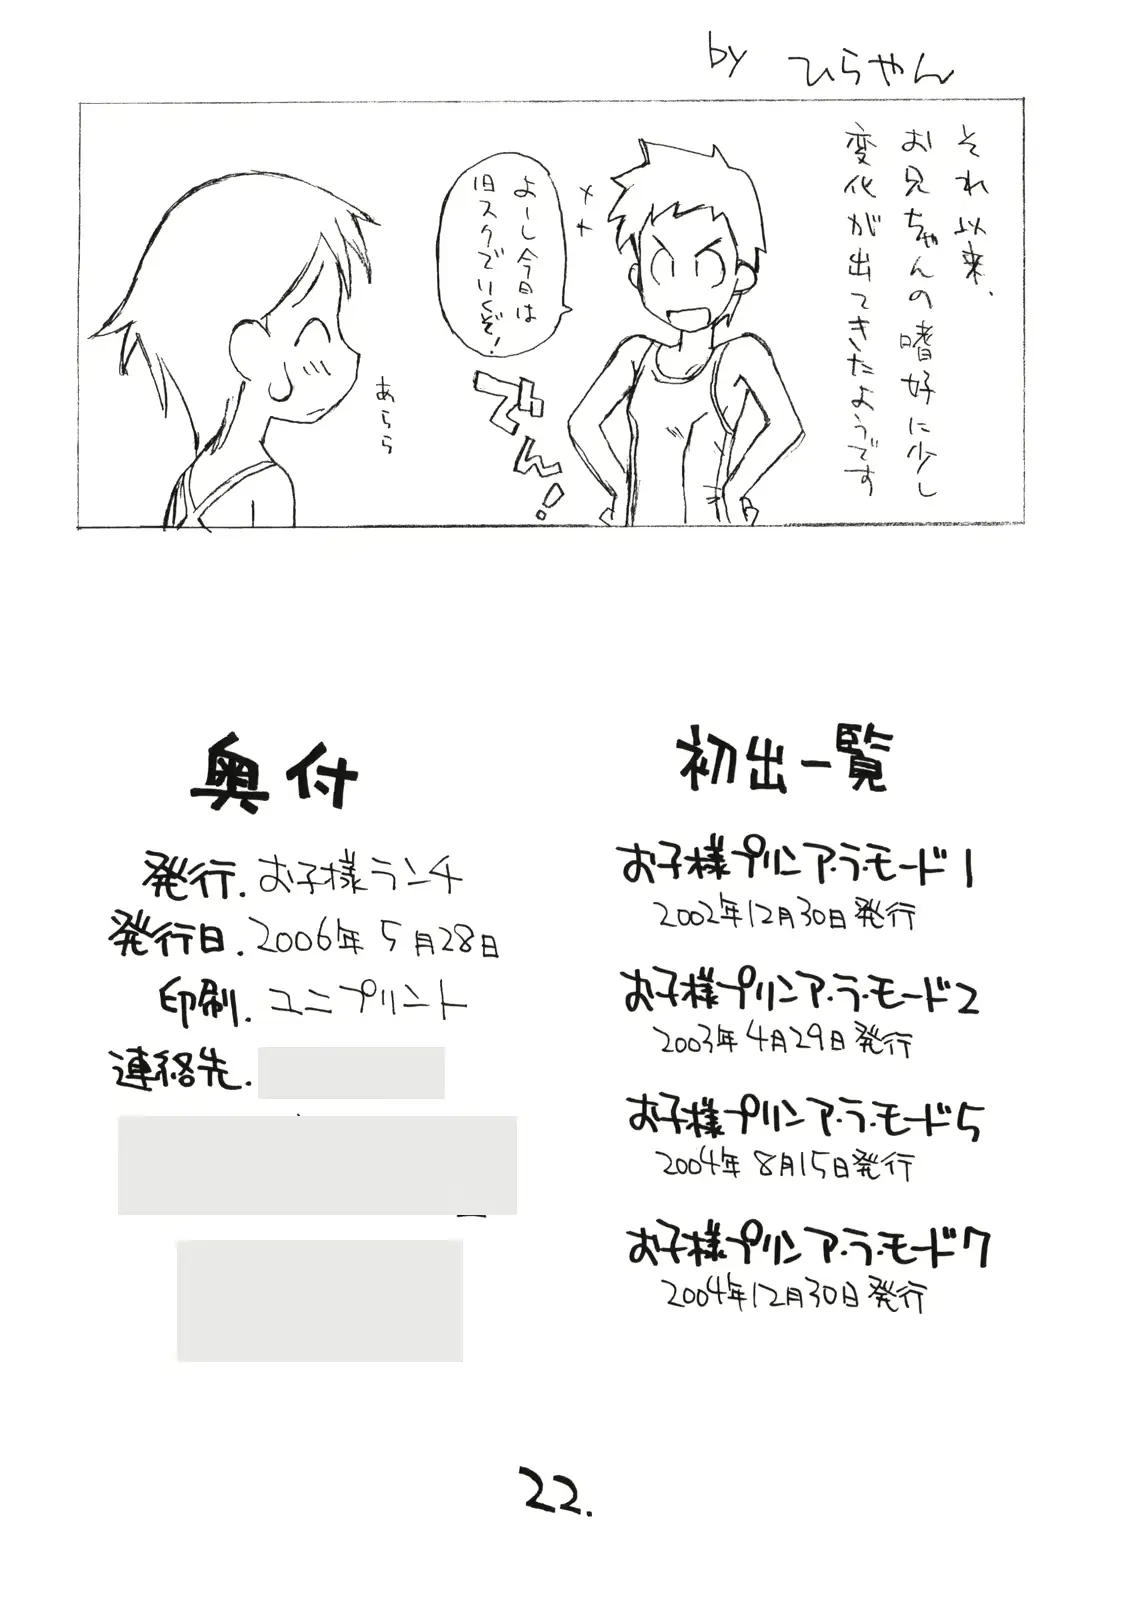 by ひらやん
それ以来、
お兄ちゃんの嗜好に少し
変化が出てきたようです
よーし今日は
旧スクでいくぞ!
でん!
あらら
奥付
発行.お子様ランチ
発行日.2006年5月28日
印刷.ユニプリント
連絡先.
初出一覧
お子様プリンア・ラ・モード1
2002年12月30日発行
お子様プリンア・ラ・モード2
2003年4月29日発行
お子様プリンア・ラ・モード5
2004年8月15日発行
お子様プリンア・ラ・モード7
2004年12月30日発行
22.